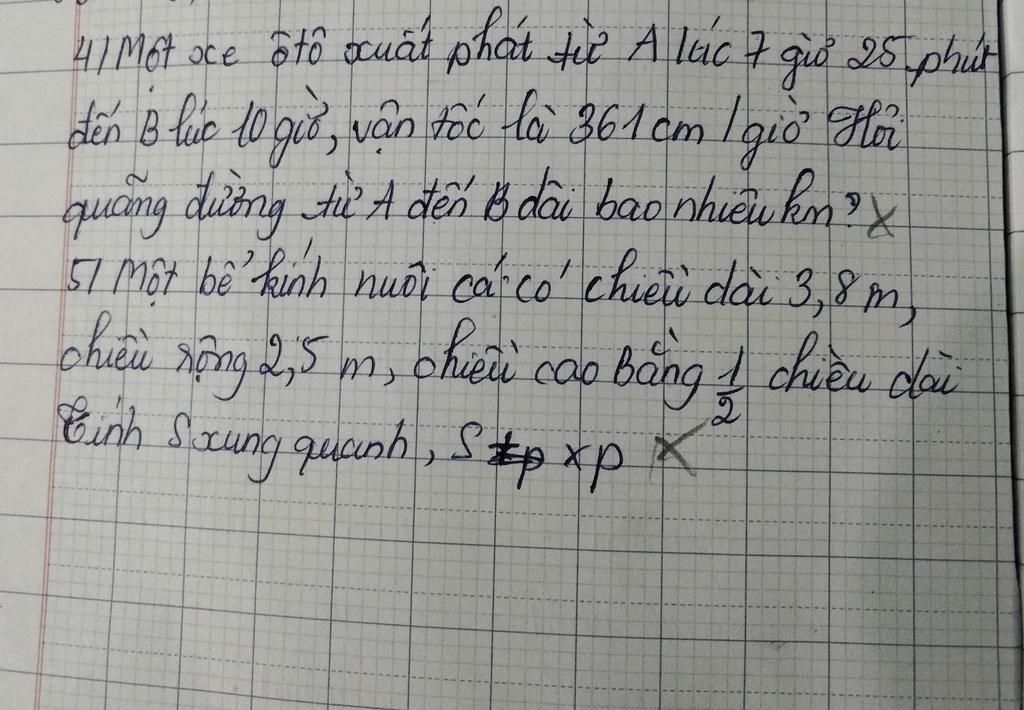 4) Một xe ôtô xuất phát từ A lúc 7 giờ 25 phút
đến B lúc 10 giờ, vận tốc là 361cm/giờ Hỏi
quãng đường từ A đến B dài bao nhiêu km? x
5) Một bể kính nuôi cá có chiều dài 3,8 m,
chiều rộng 2,5 m, chiều cao bằng 1/2 chiều dài
Tính Sxung quanh, S xp x